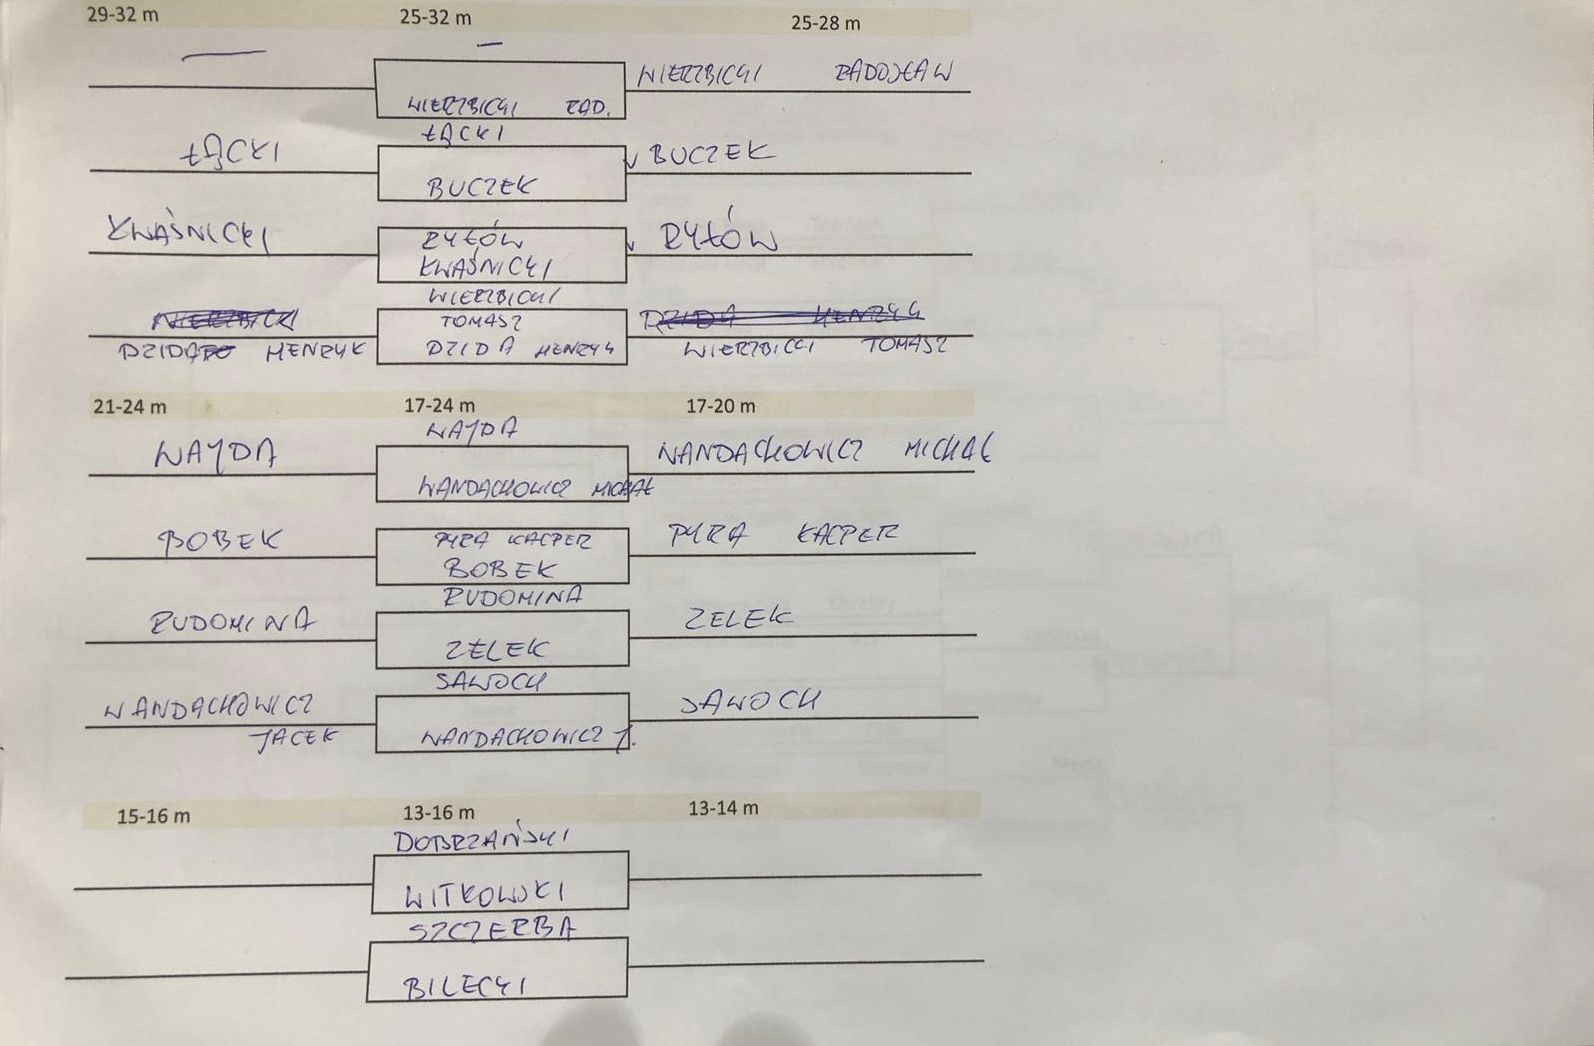 29-32 m 25-32 m 25-28 m
— — WIERZBICKI RADOSŁAW
WIERZBICKI RAD.
ŁĄCKI
ŁĄCKI BUCZEK
BUCZEK
KWAŚNICKI RYŁÓW RYŁÓW
KWAŚNICKI
WIERZBICKI
WIERZBICKI TOMASZ DZIDA HENRYK
DZIDA HENRYK DZIDA HENRYK WIERZBICKI TOMASZ
21-24 m 17-24 m 17-20 m
WAJDA
WAJDA WANDACHOWICZ MICHAŁ
WANDACHOWICZ MICHAŁ
BOBEK PYRA KACPER PYRA KACPER
BOBEK
RUDOMINA
RUDOMINA ZELEK
ZELEK
SAWOCH
WANDACHOWICZ SAWOCH
JACEK WANDACHOWICZ J.
15-16 m 13-16 m 13-14 m
DOBRZAŃSKI
WITKOWSKI
SZCZERBA
BILECKI